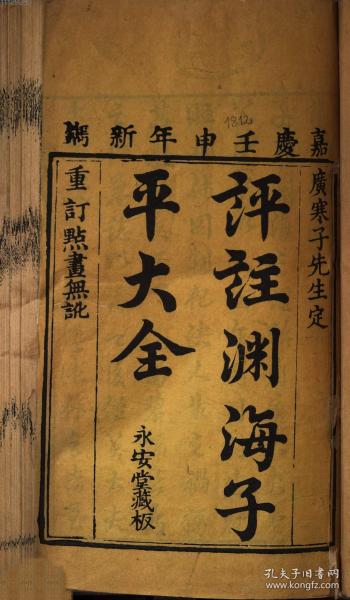 嘉慶壬申年新鐫
1812
廣寒子先生定
評註渊海子
平大全
永安堂藏板
重訂點畫無訛
孔夫子旧书网